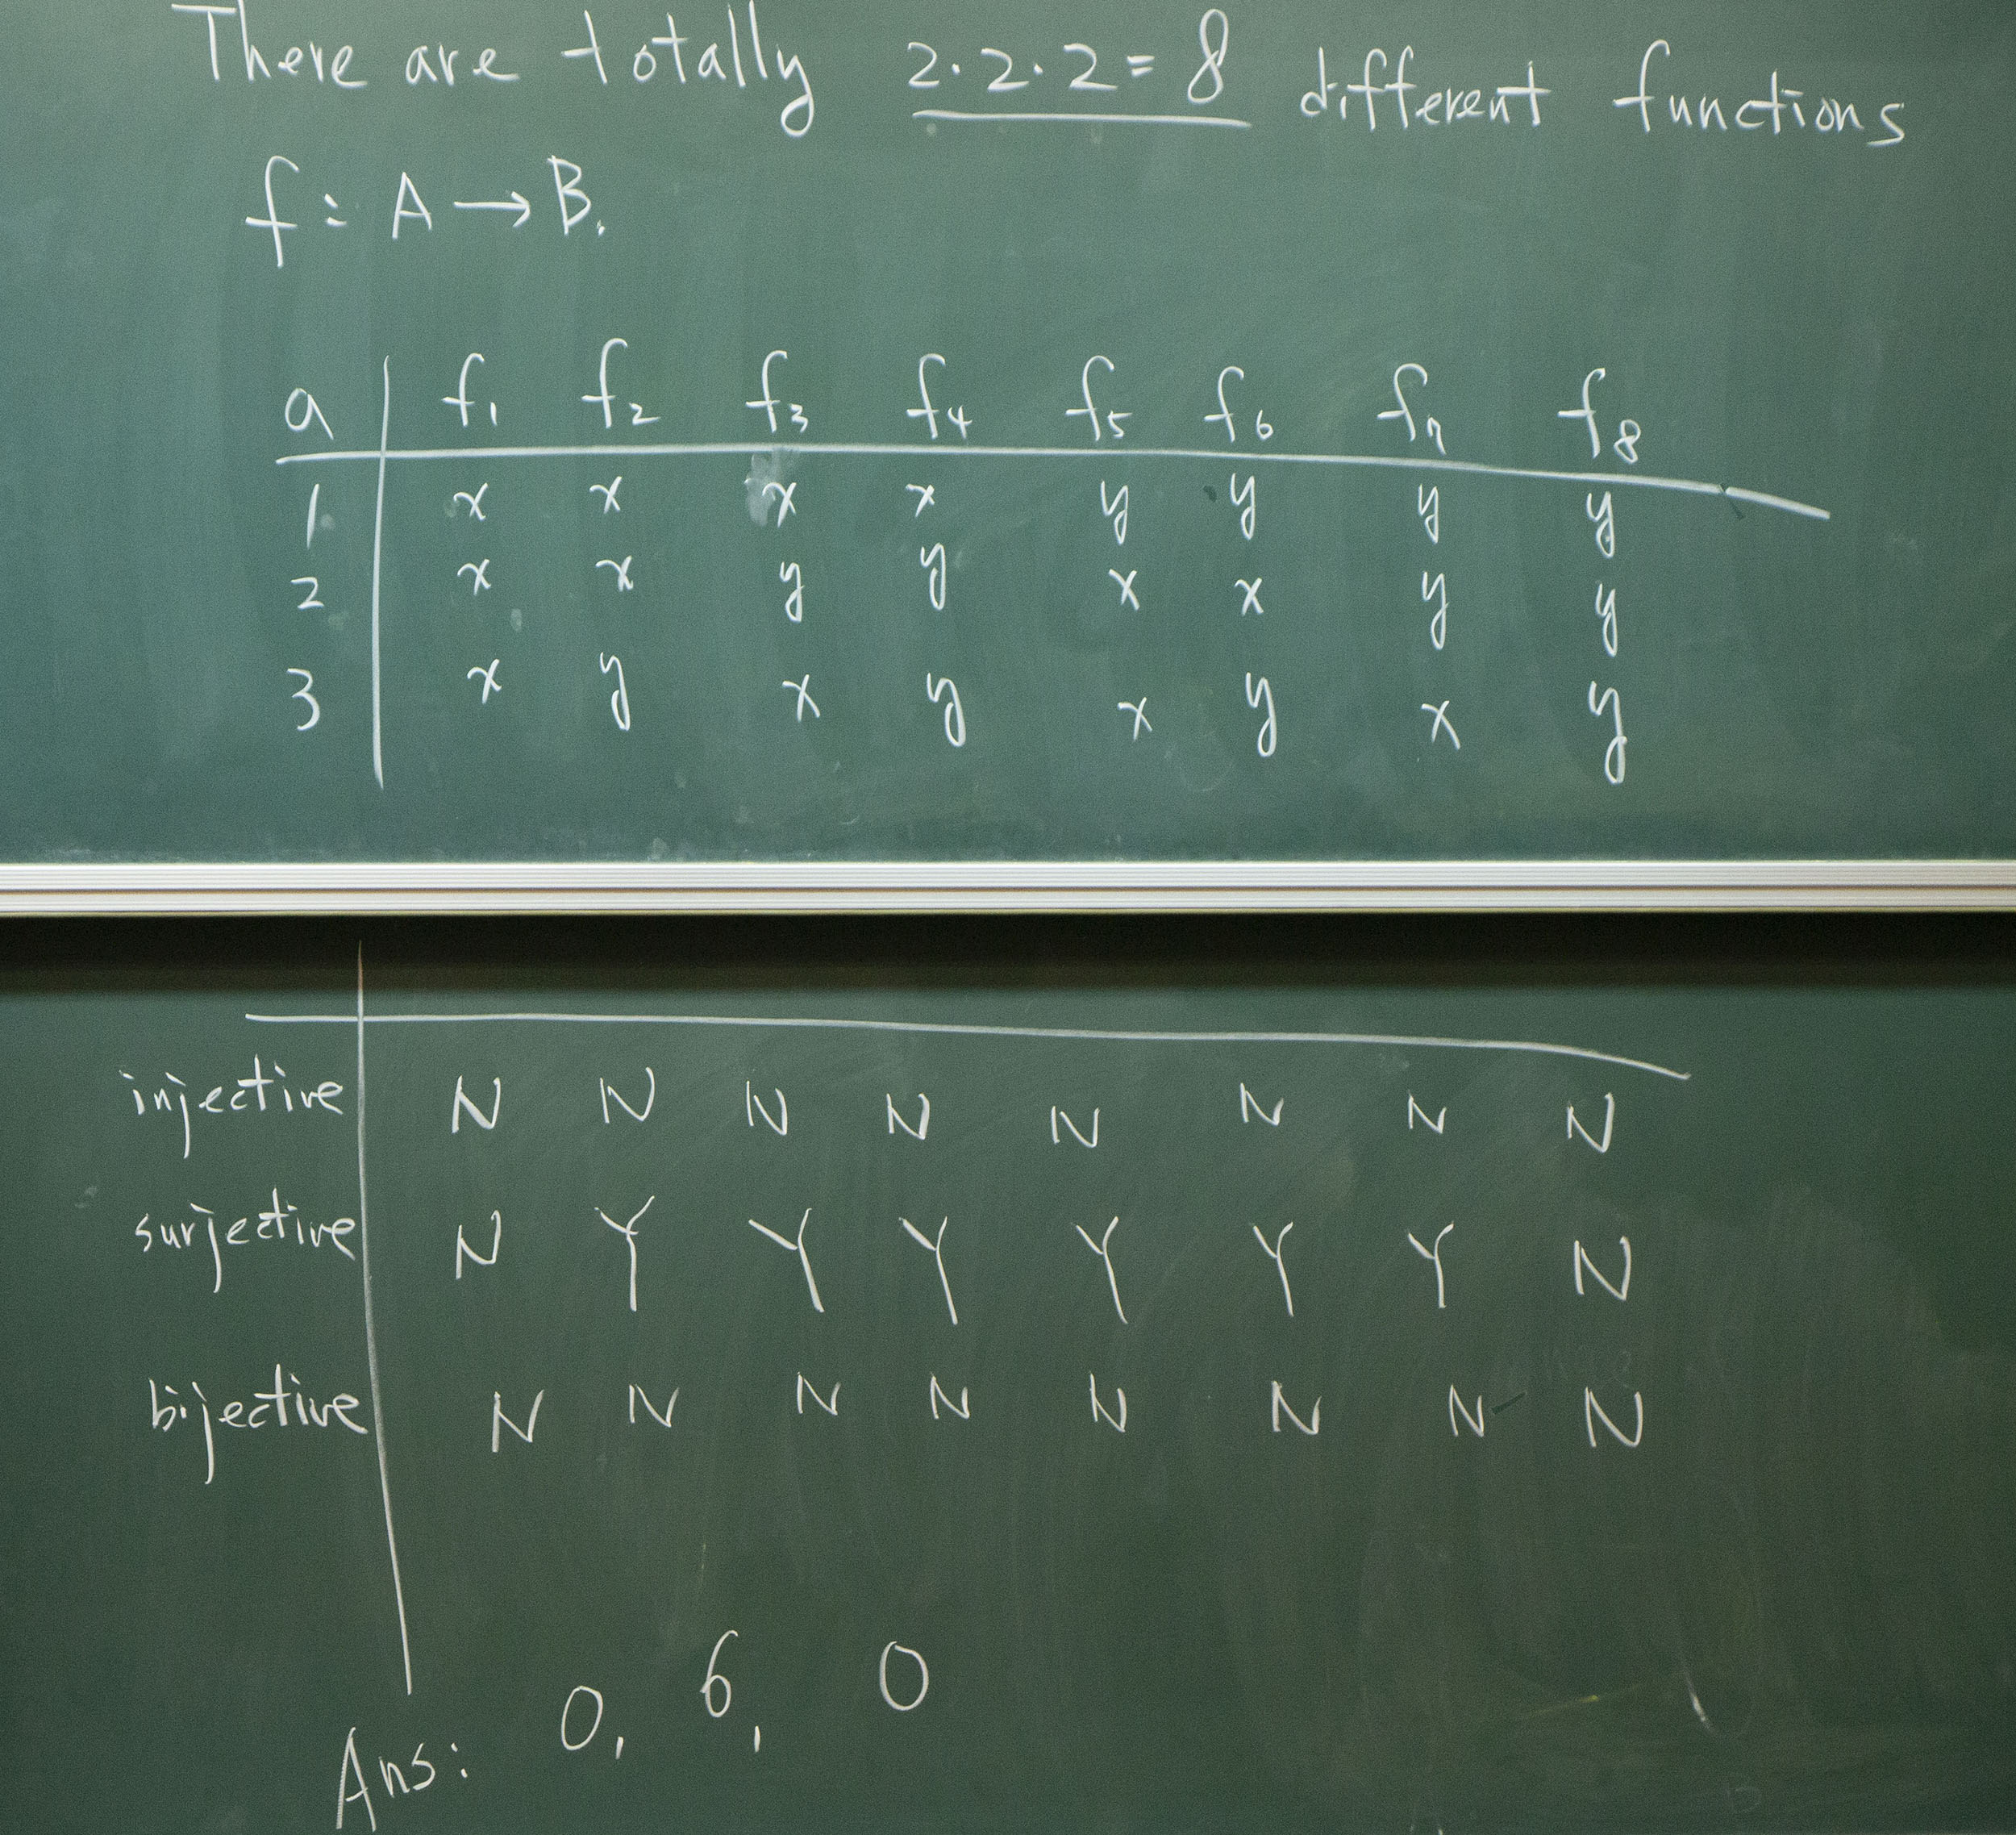 There are totally 2·2·2=8 different functions
f: A → B.
a f₁ f₂ f₃ f₄ f₅ f₆ f₇ f₈
1 x x x x y y y y
2 x x y y x x y y
3 x y x y x y x y
injective N N N N N N N N
surjective N Y Y Y Y Y Y N
bijective N N N N N N N N
Ans: 0, 6, 0